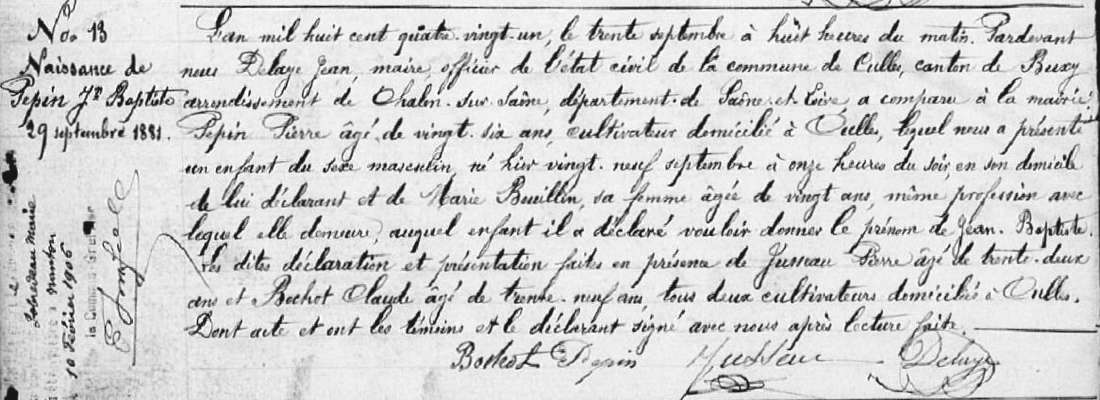 No. 13
Naissance de
Pepin Jn Baptiste
29 septembre 1881.
L'an mil huit cent quatre-vingt-un, le trente septembre à huit heures du matin. Pardevant
nous Delaye Jean, maire, officier de l'état civil de la commune de Culles, canton de Buxy
arrondissement de Chalon-sur-Saône, département de Saône-et-Loire a comparu à la mairie
Pepin Pierre âgé de vingt-six ans, cultivateur domicilié à Culles, lequel nous a présenté
un enfant du sexe masculin, né hier vingt-neuf septembre à onze heures du soir, en son domicile
de lui déclarant et de Marie Bouillin, sa femme âgée de vingt ans, même profession avec
lequel elle demeure, auquel enfant il a déclaré vouloir donner le prénom de Jean-Baptiste.
Les dites déclaration et présentation faites en présence de Jusseau Pierre âgé de trente-deux
ans et Bochot Claude âgé de trente-neuf ans, tous deux cultivateurs domiciliés à Culles.
Dont acte et ont les témoins et le déclarant signé avec nous après lecture faite.
Bochot Pepin Jusseau Delaye
Marie
à
10 Février 1906